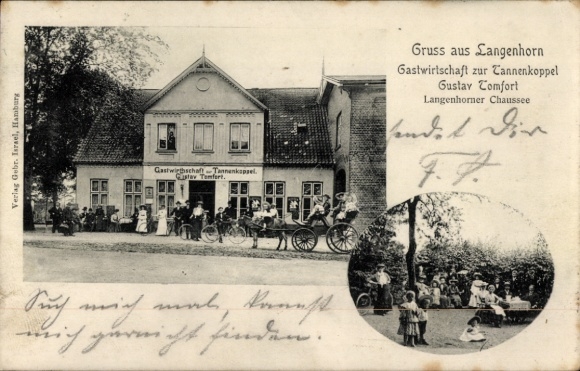 Gruss aus Langenhorn
Gastwirtschaft zur Tannenkoppel
Gustav Tomfort
Langenhorner Chaussee
sendet Dir
F. H.
Gastwirtschaft zur Tannenkoppel.
Gustav Tomfort.
Verlag Gebr. Israel, Hamburg
Such mich mal, kannst
mich garnicht finden.